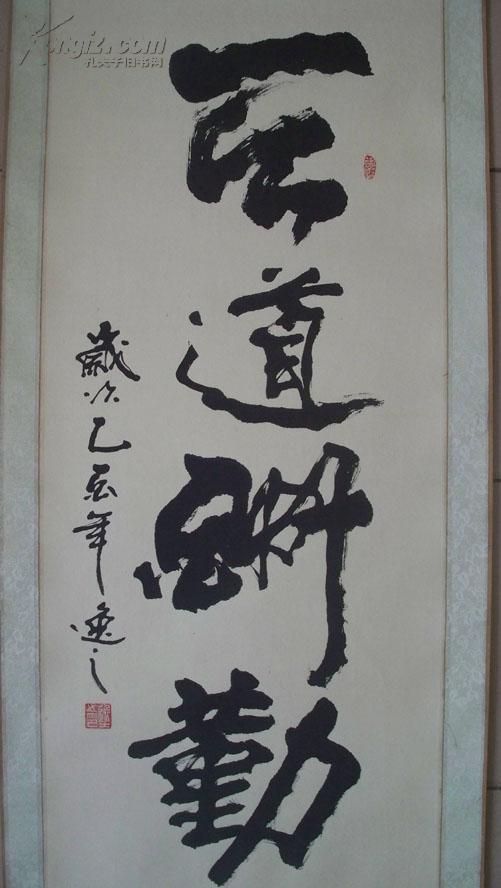 Kongfz.com
孔夫子旧书网
天道酬勤
歲次乙酉年逸之